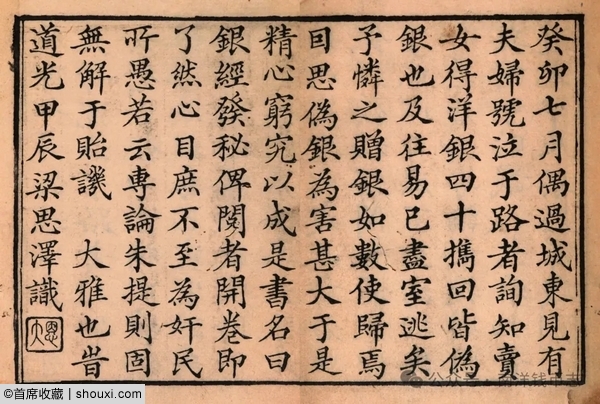 癸卯七月偶過城東見有
夫婦號泣于路者詢知賣
女得洋銀四十攜回皆偽
銀也及往易已盡室逃矣
予憐之贈銀如數使歸焉
回思偽銀為害甚大于是
精心窮究以成是書名曰
銀經發秘俾閱者開卷即
了然心目庶不至為奸民
所愚若云專論朱提則固
無解于貽譏 大雅也旹
道光甲辰梁思澤識
@首席收藏 | shouxi.com
公众号